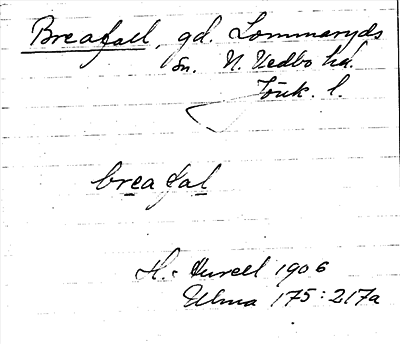 Breafall, gd. Lommaryds
sn. N. Vedbo hd.
Jönk. l.
breafal
H. Hurell 1906
Ulma 175:217a